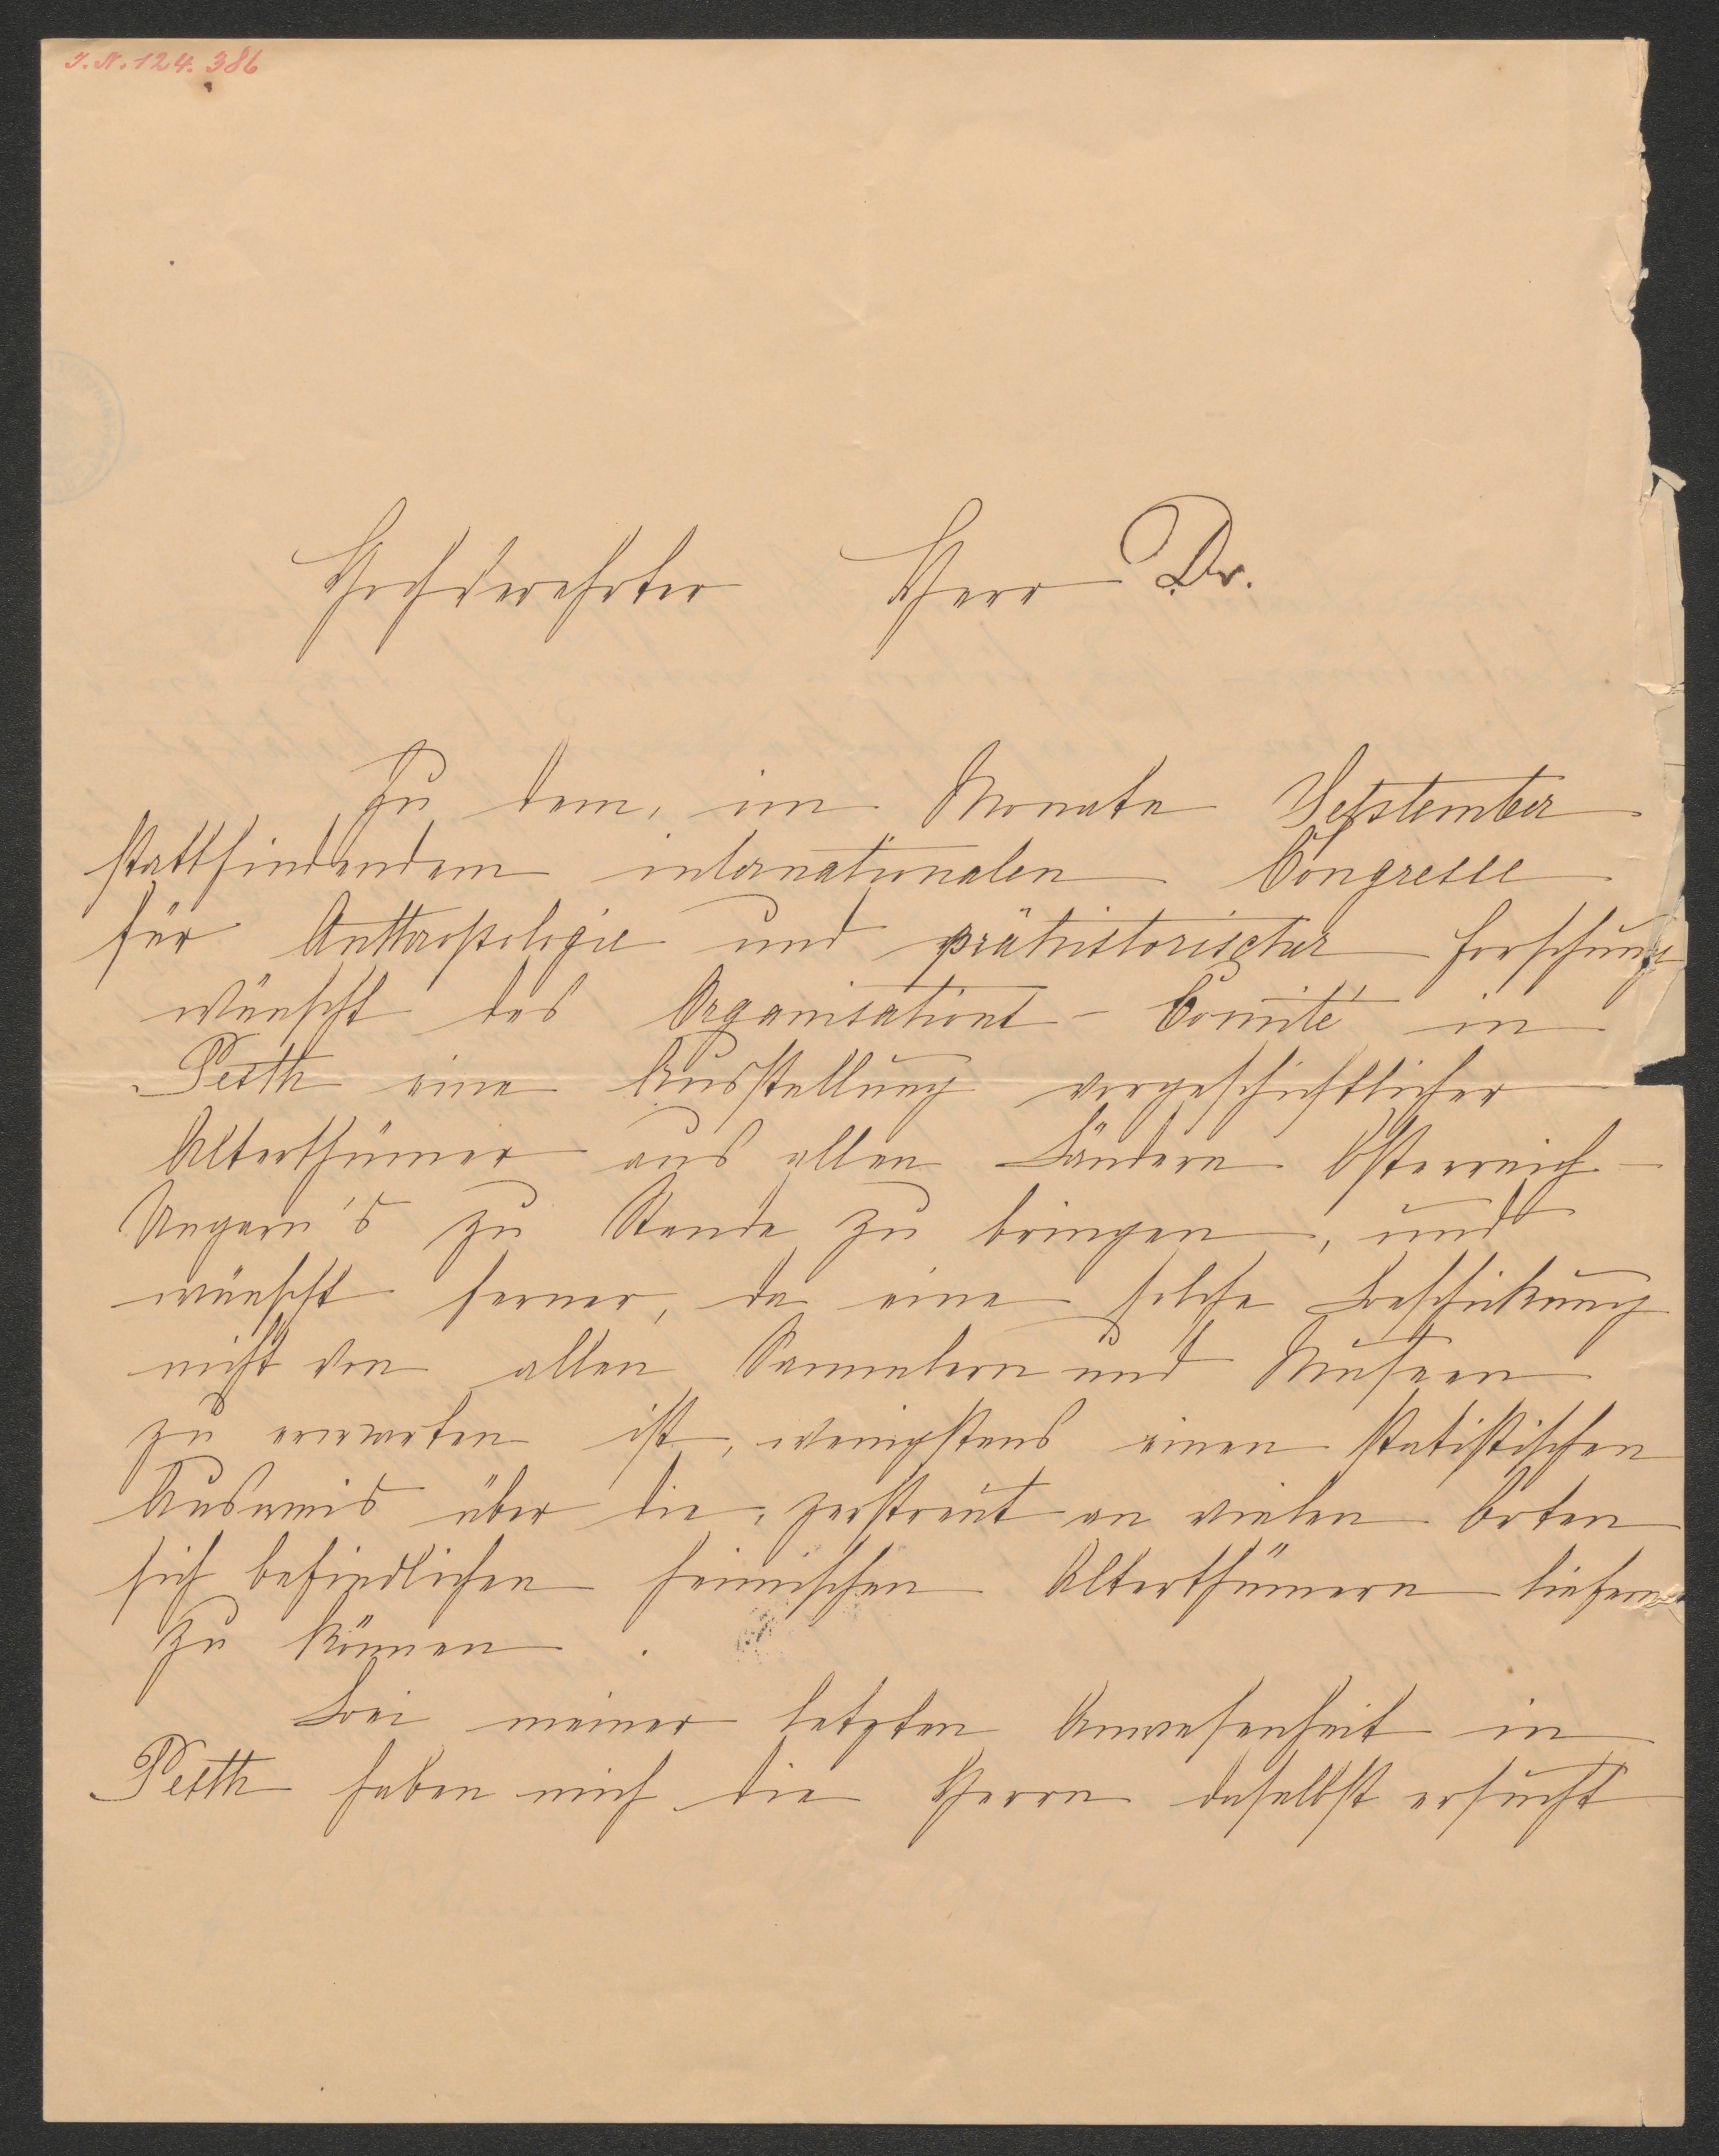 I.N. 124.386
Hochverehrter Herr Dr.
Zu dem, im Monate September
stattfindendem internationalen Congresse
für Anthropologie und prähistorischer Forschung
wünscht das Organisations-Comité in
Pesth eine Ausstellung vorgeschichtlicher
Alterthümer aus allen Ländern Österreich-
Ungarn's zu Stande zu bringen, und
wünscht ferner, da eine solche Beschickung
nicht von allen Sammlern und Museen
zu erwarten ist, wenigstens einen statistischen
Ausweis über die, zerstreut an vielen Orten
sich befindlichen heimischen Alterthümern liefern
zu können.
Bei meiner letzten Anwesenheit in
Pesth haben mich die Herrn daselbst ersucht